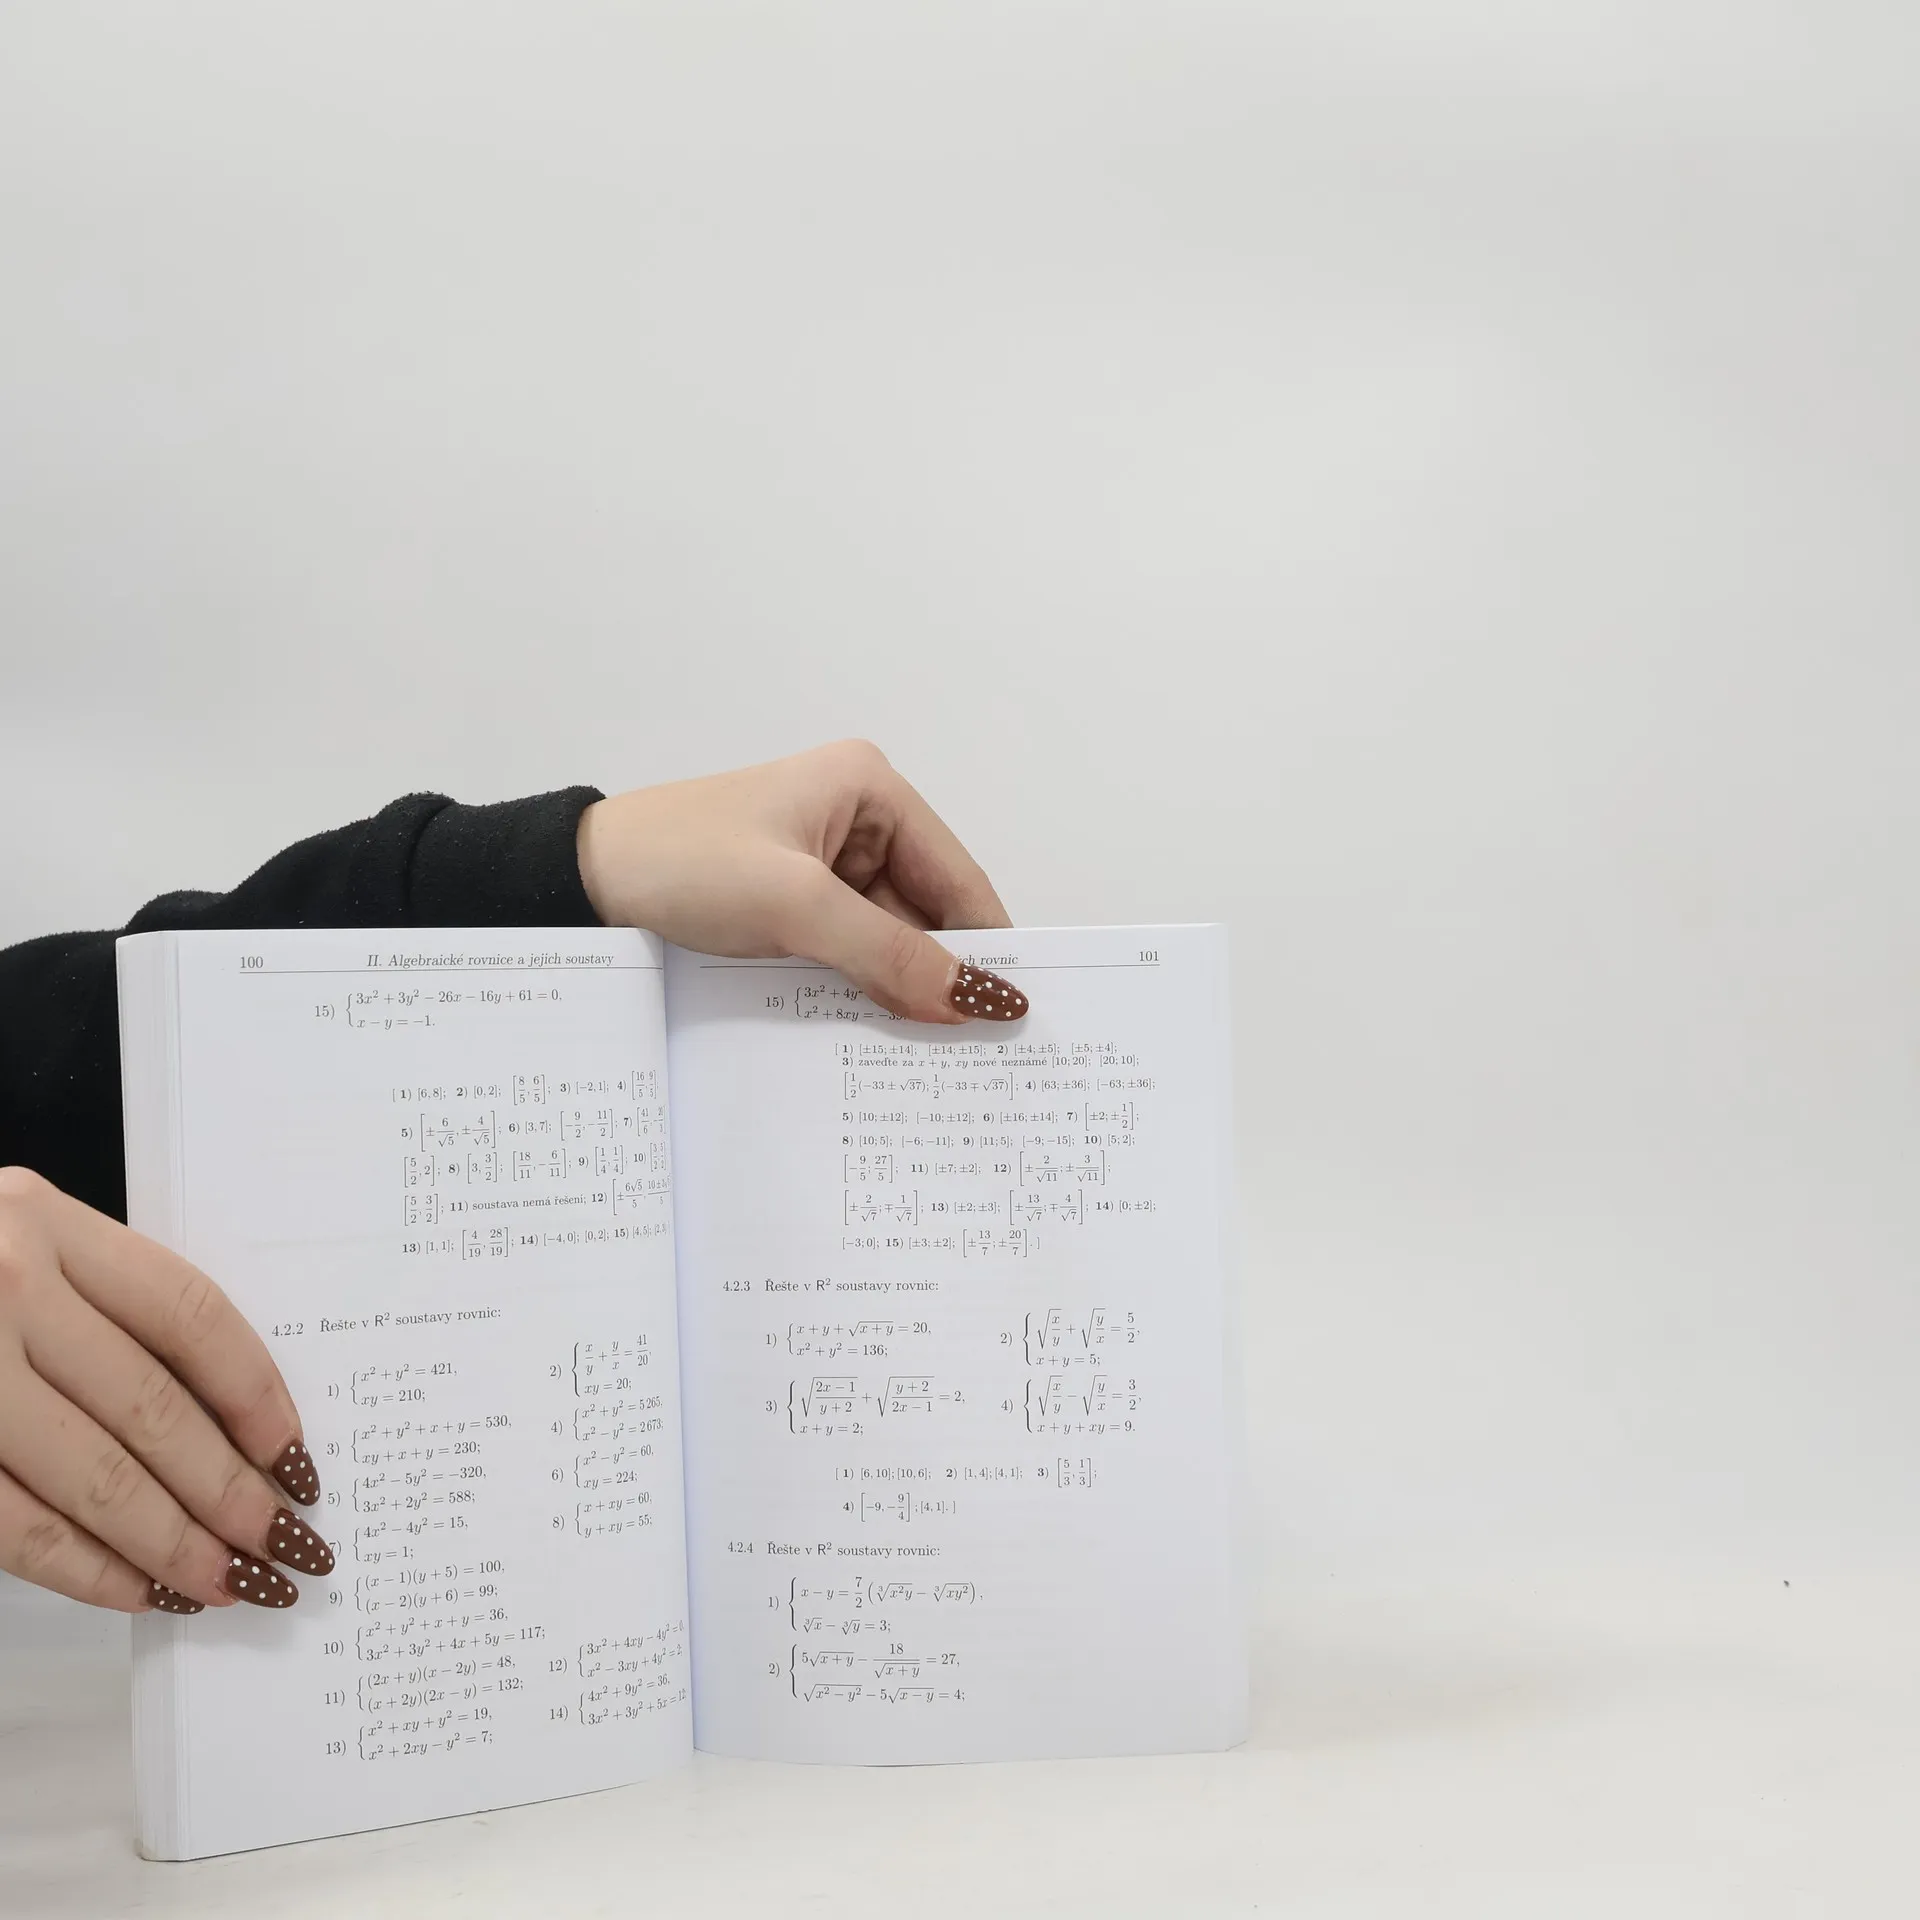 100 II. Algebraické rovnice a jejich soustavy
15) { 3x² + 3y² − 26x − 16y + 61 = 0,
x − y = −1.
[ 1) [6, 8]; 2) [0, 2]; [8/5, 6/5]; 3) [−2, 1]; 4) [16/5, 9/5];
5) [±6/√5, ±4/√5]; 6) [3, 7]; [−9/2, −11/2]; 7)
[5/2, 2]; 8) [3, 3/2]; [18/11, −6/11]; 9) [1/4, 1/4]; 10)
[5/2, 3/2]; 11) soustava nemá řešení; 12)
13) [1, 1]; [4/19, 28/19]; 14) [−4, 0]; [0, 2]; 15) [4, 5];
4.2.2 Řešte v R² soustavy rovnic:
1) { x² + y² = 421,
xy = 210;
2) { x/y + y/x = 41/20,
xy = 20;
3) { x² + y² + x + y = 530,
xy + x + y = 230;
4) { x² + y² = 5 265,
x² − y² = 2 673;
5) { 4x² − 5y² = −320,
3x² + 2y² = 588;
6) { x² − y² = 60,
xy = 224;
7) { 4x² − 4y² = 15,
xy = 1;
8) { x + xy = 60,
y + xy = 55;
9) { (x − 1)(y + 5) = 100,
(x − 2)(y + 6) = 99;
10) { x² + y² + x + y = 36,
3x² + 3y² + 4x + 5y = 117;
11) { (2x + y)(x − 2y) = 48,
(x + 2y)(2x − y) = 132;
12) { 3x² + 4xy − 4y² = 0,
x² − 3xy + 4y² = 2;
13) { x² + xy + y² = 19,
x² + 2xy − y² = 7;
14) { 4x² + 9y² = 36,
3x² + 3y² + 5x = 12;
rovnic 101
15) { 3x² + 4y²
x² + 8xy =
[ 1) [±15; ±14]; [±14; ±15]; 2) [±4; ±5]; [±5; ±4];
3) zaveďte za x + y, xy nové neznámé [10; 20]; [20; 10];
[1/2(−33 ± √37); 1/2(−33 ∓ √37)]; 4) [63; ±36]; [−63; ±36];
5) [10; ±12]; [−10; ±12]; 6) [±16; ±14]; 7) [±2; ±1/2];
8) [10; 5]; [−6; −11]; 9) [11; 5]; [−9; −15]; 10) [5; 2];
[−9/5; 27/5]; 11) [±7; ±2]; 12) [±2/√11; ±3/√11];
[±2/√7; ∓1/√7]; 13) [±2; ±3]; [±13/√7; ∓4/√7]; 14) [0; ±2];
[−3; 0]; 15) [±3; ±2]; [±13/7; ±20/7]. ]
4.2.3 Řešte v R² soustavy rovnic:
1) { x + y + √(x + y) = 20,
x² + y² = 136;
2) { √(x/y) + √(y/x) = 5/2,
x + y = 5;
3) { √((2x − 1)/(y + 2)) + √((y + 2)/(2x − 1)) = 2,
x + y = 2;
4) { √(x/y) − √(y/x) = 3/2,
x + y + xy = 9.
[ 1) [6, 10]; [10, 6]; 2) [1, 4]; [4, 1]; 3) [5/3, 1/3];
4) [−9, −9/4]; [4, 1]. ]
4.2.4 Řešte v R² soustavy rovnic:
1) { x − y = 7/2 (∛(x²y) − ∛(xy²)),
∛x − ∛y = 3;
2) { 5√(x + y) − 18/√(x + y) = 27,
√(x² − y²) − 5√(x − y) = 4;